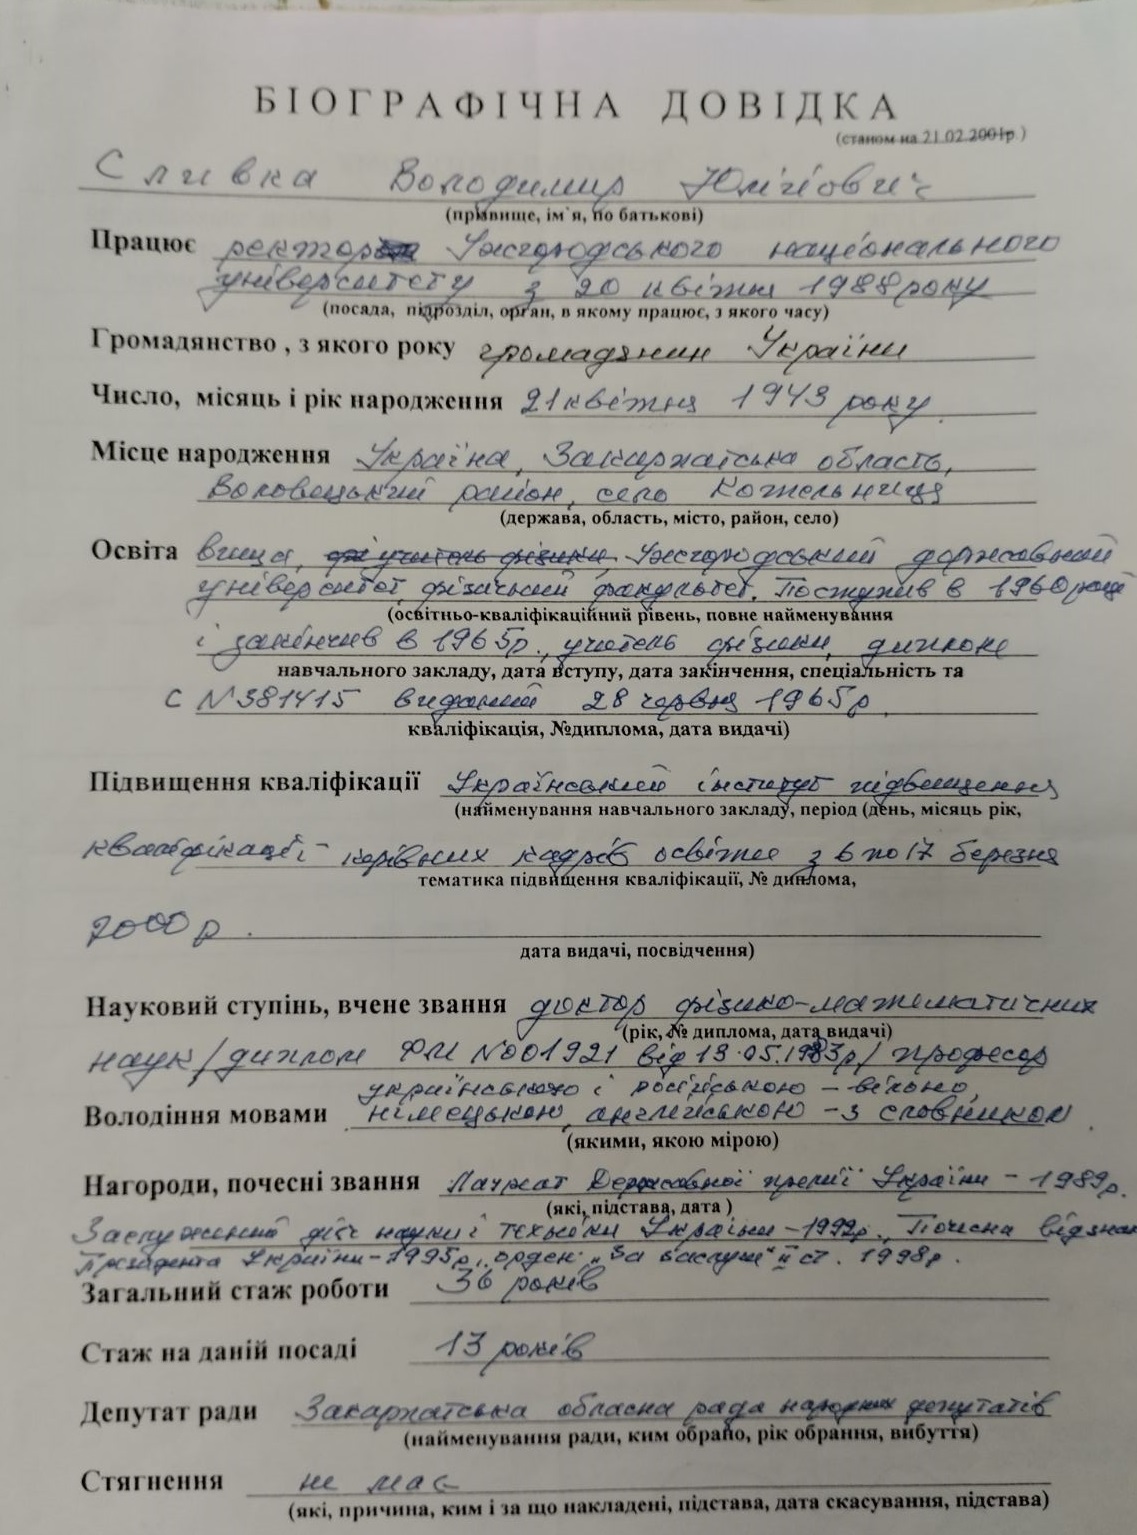 БІОГРАФІЧНА ДОВІДКА
(станом на 21.02.2001р.)
Сливка Володимир Юлійович
(прізвище, ім`я, по батькові)
Працює ректор Ужгородського національного
університету з 20 квітня 1988 року
(посада, підрозділ, орган, в якому працює, з якого часу)
Громадянство , з якого року громадянин України
Число, місяць і рік народження 21 квітня 1943 року.
Місце народження Україна, Закарпатська область,
Воловецький район, село Котельниця
(держава, область, місто, район, село)
Освіта вища, учитель фізики, Ужгородський державний
університет, фізичний факультет. Поступив в 1960 році
(освітньо-кваліфікаційний рівень, повне найменування
і закінчив в 1965р., учитель фізики, диплом
навчального закладу, дата вступу, дата закінчення, спеціальність та
С №381415 виданий 28 червня 1965р.
кваліфікація, №диплома, дата видачі)
Підвищення кваліфікації Український інститут підвищення
(найменування навчального закладу, період (день, місяць рік,
кваліфікації керівних кадрів освіти з 6 по 17 березня
тематика підвищення кваліфікації, № диплома,
2000 р.
дата видачі, посвідчення)
Науковий ступінь, вчене звання доктор фізико-математичних
(рік, № диплома, дата видачі)
наук /диплом ФМ №001921 від 13.05.1983р/ професор
українською і російською – вільно,
Володіння мовами німецькою, англійською – з словником.
(якими, якою мірою)
Нагороди, почесні звання Лауреат Державної премії України – 1989р.
(які, підстава, дата )
Заслужений діяч науки і техніки України – 1992р. Почесна відзнака
Президента України – 1995р., орден „За заслуги" ІІ ст. 1998р.
Загальний стаж роботи 36 років
Стаж на даній посаді 13 років
Депутат ради Закарпатська обласна рада народних депутатів
(найменування ради, ким обрано, рік обрання, вибуття)
Стягнення не має
(які, причина, ким і за що накладені, підстава, дата скасування, підстава)